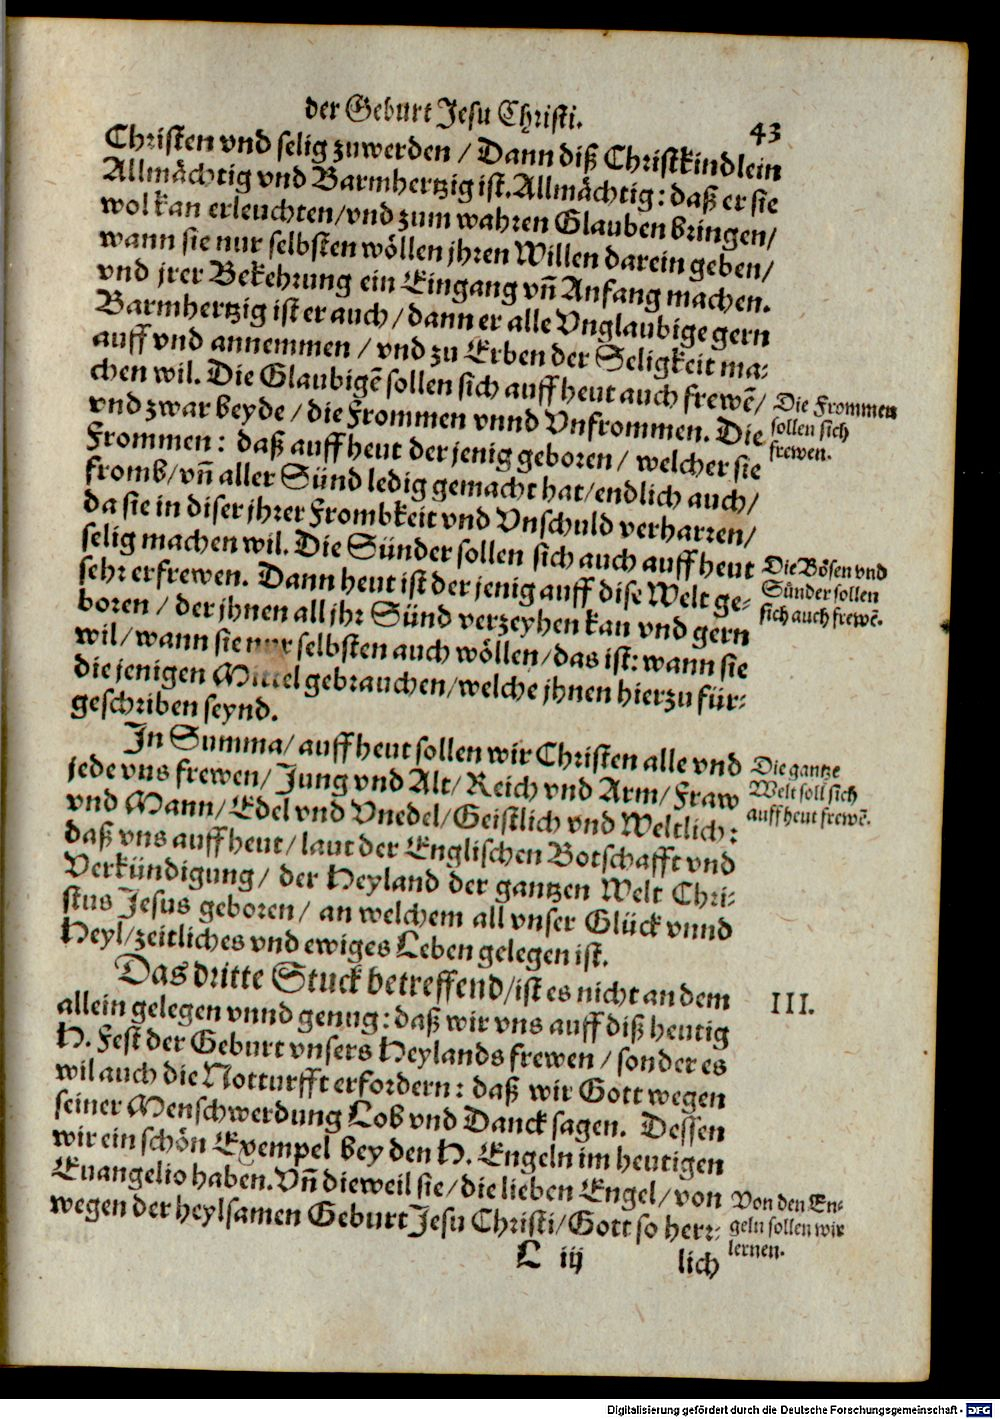 der Geburt Jesu Christi.
43
Christen vnd selig zuwerden / Dann diß Christkindlein
Allmächtig vnd Barmhertzig ist. Allmächtig: daß er sie
wol kan erleuchten/vnd zum wahren Glauben bringen/
wann sie nur selbsten wöllen jhren Willen darein geben/
vnd jrer Bekehrung ein Eingang vñ Anfang machen.
Barmhertzig ist er auch / dann er alle Vnglaubige gern
auff vnd annemmen / vnd zu Erben der Seligkeit ma-
chen wil. Die Glaubigẽ sollen sich auff heut auch frewẽ/
vnd zwar beyde / die Frommen vnnd Vnfrommen. Die
Frommen: daß auff heut der jenig geboren / welcher sie
fromb/vñ aller Sünd ledig gemacht hat/endlich auch/
da sie in diser jhrer Frombkeit vnd Vnschuld verharren/
selig machen wil. Die Sünder sollen sich auch auff heut
sehr erfrewen. Dann heut ist der jenig auff dise Welt ge-
boren / der jhnen all jhr Sünd verzeyhen kan vnd gern
wil/wann sie nur selbsten auch wöllen/das ist: wann sie
die jenigen Mittel gebrauchen/welche jhnen hierzu für-
geschriben seynd.
Die Frommen
sollen sich
frewen.
Die Bösen vnd
Sünder sollen
sich auch frewẽ.
In Summa/ auff heut sollen wir Christen alle vnd
jede vns frewen/ Jung vnd Alt/ Reich vnd Arm/ Fraw
vnd Mann/ Edel vnd Vnedel/ Geistlich vnd Weltlich:
daß vns auff heut/ laut der Englischen Botschafft vnd
Verkündigung/ der Heyland der gantzen Welt Chri-
stus Jesus geboren/ an welchem all vnser Glück vnnd
Heyl/zeitliches vnd ewiges Leben gelegen ist.
Die gantze
Welt soll sich
auff heut frewẽ.
Das dritte Stuck betreffend/ist es nicht an dem
allein gelegen vnnd genug: daß wir vns auff diß heutig
H. Fest der Geburt vnsers Heylands frewen / sonder es
wil auch die Notturfft erfordern: daß wir Gott wegen
seiner Menschwerdung Lob vnd Danck sagen. Dessen
wir ein schön Exempel bey den H. Engeln im heutigen
Euangelio haben. Vñ dieweil sie/ die lieben Engel/ von
wegen der heylsamen Geburt Jesu Christi/ Gott so herr-
III.
Von den En-
geln sollen wir
lernen.
L iij
lich
Digitalisierung gefördert durch die Deutsche Forschungsgemeinschaft - DFG